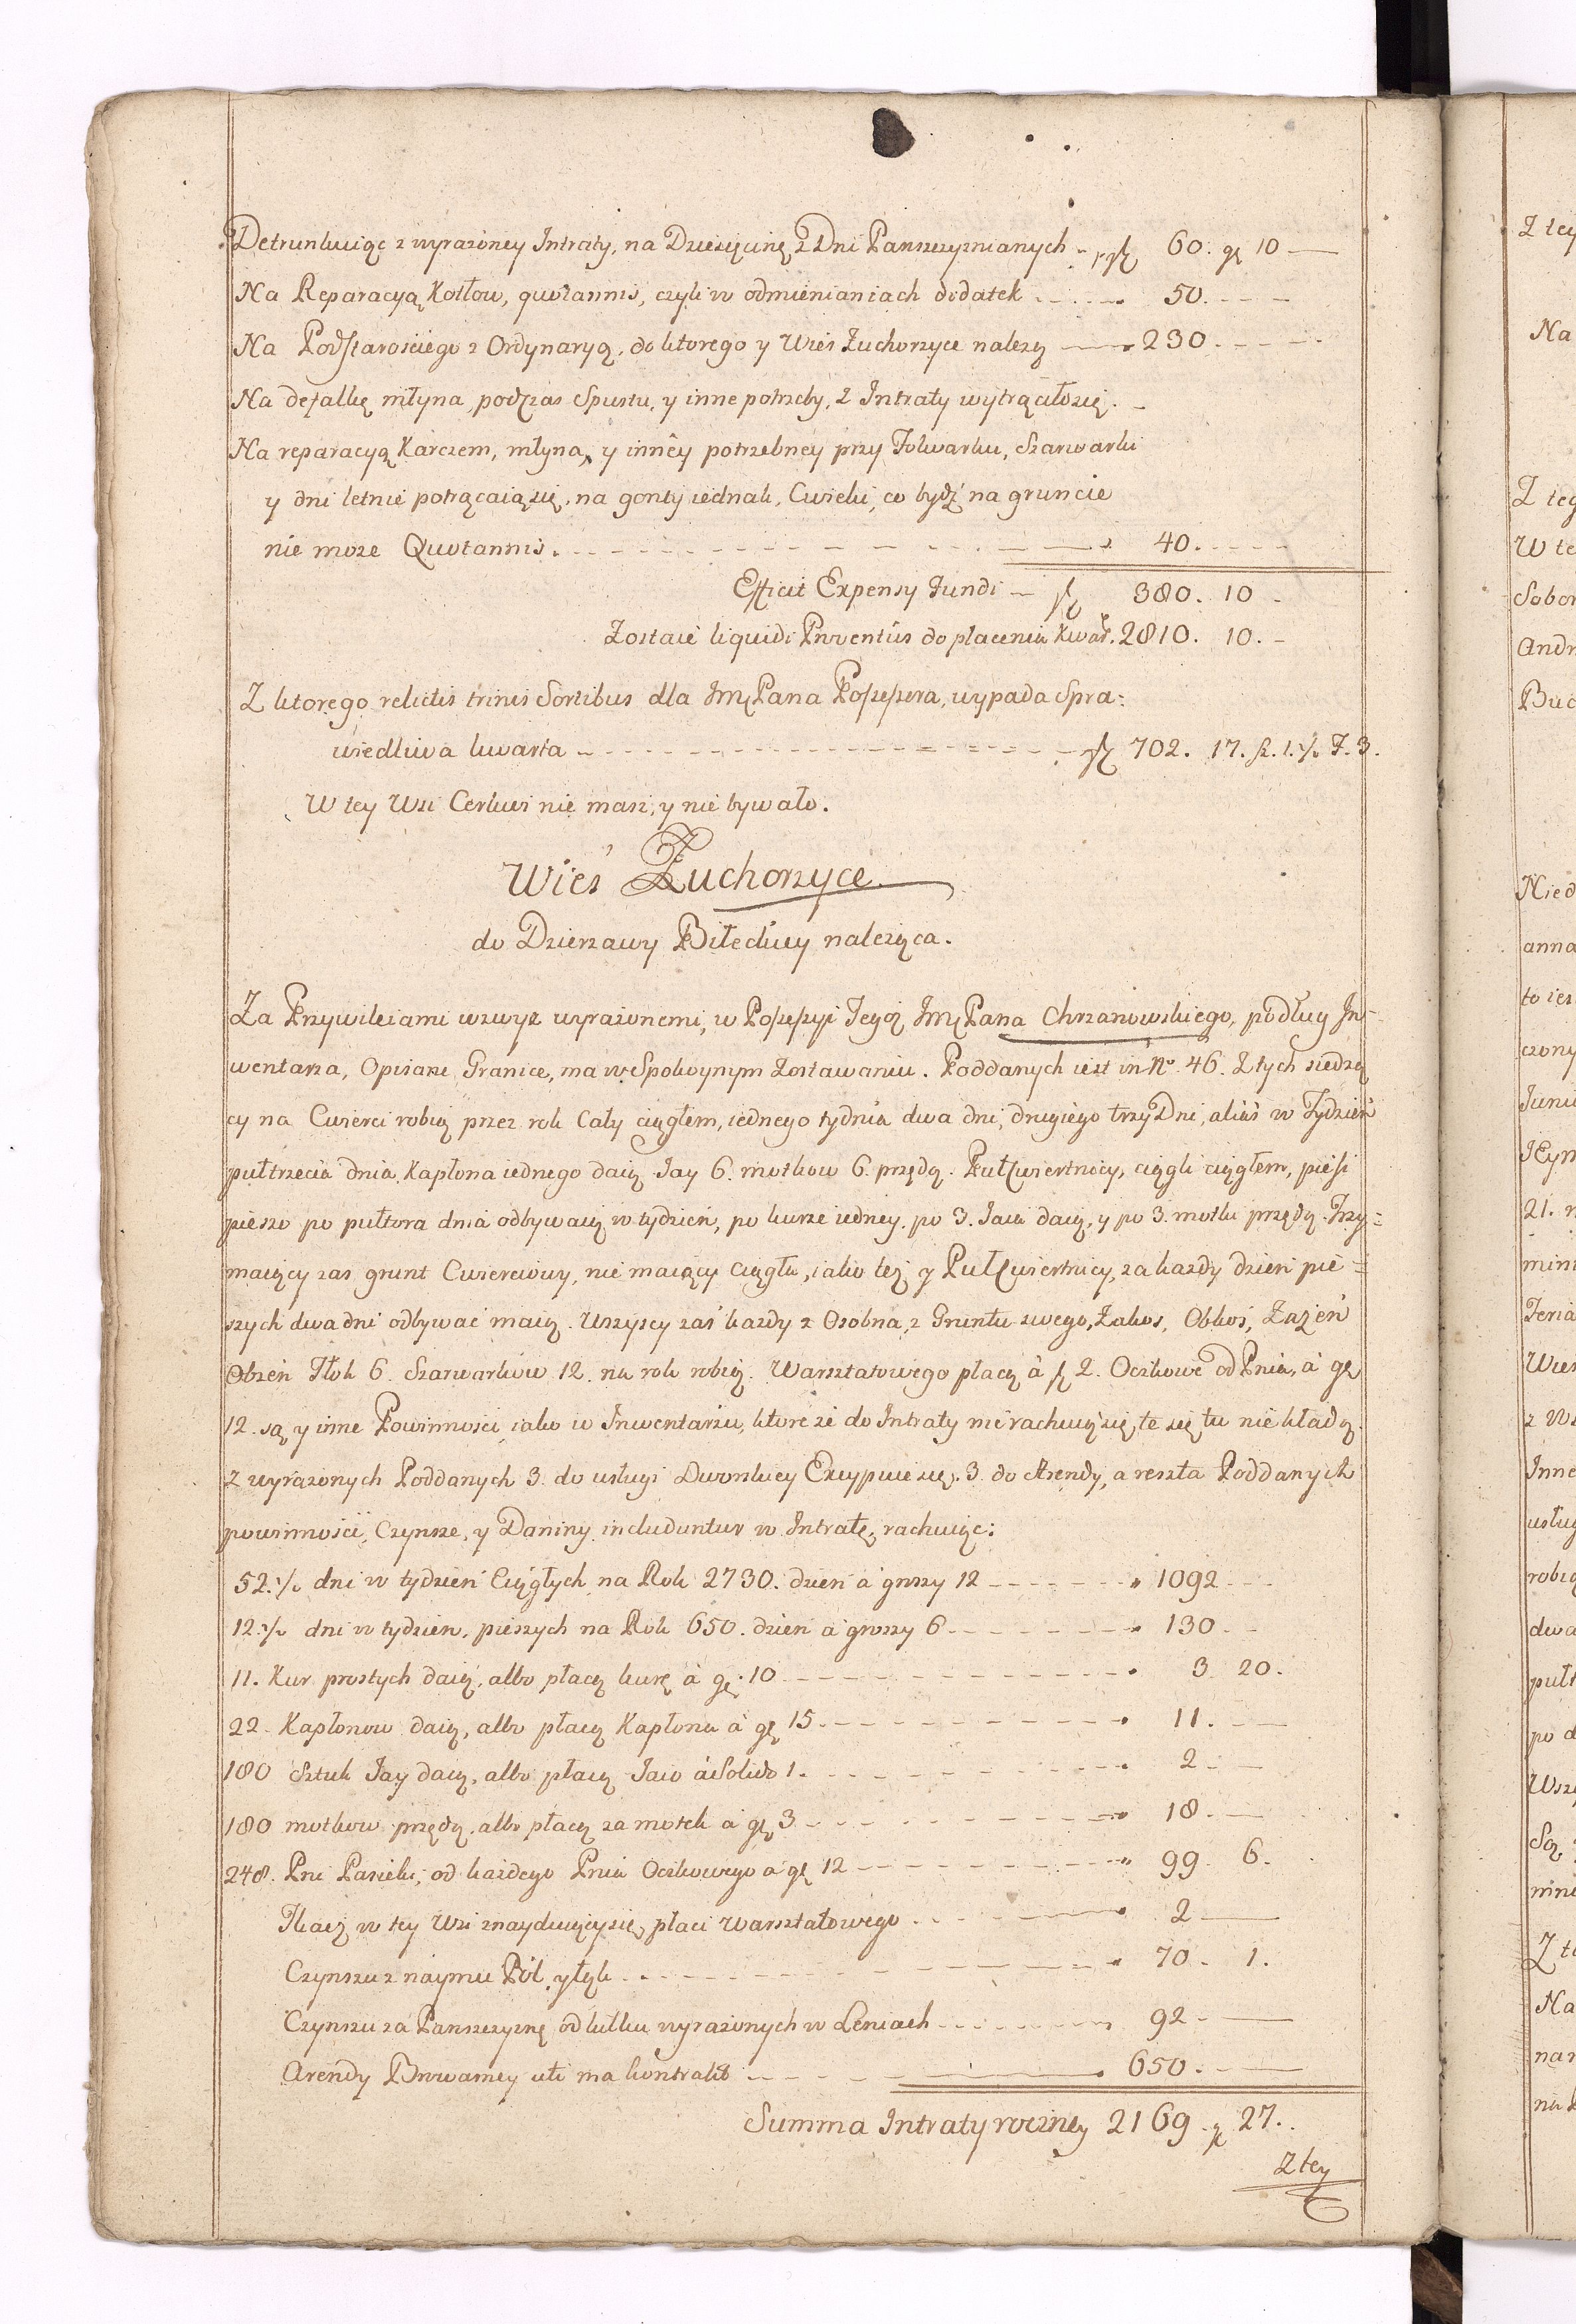 Detrunkuiąc z wyrażoney Intraty, na Dziesięcinę z Dni Panszczyznianych fl 60. gr 10
Na Reparacyą Kotłow, quotannis, czyli w odmienianiach dodatek 50.
Na Podstarosciego z Ordynaryą, do ktorego y Wies Zuchorzyce nalezy 230.
Na defalkę młyna podczas Spustu, y inne potrzeby, z Intraty wytrąciłosię.
Na reparacyą Karczem, młyna, y inney potrzebney przy Folwarku, Szarwarki
y dni letnie potrącaiąsię, na gonty iednak, Cwieki, co bydź na gruncie
nie moze Quotannis. 40.
Efficit Expensy Fundi fl 380. 10
Zostaie liquidi Proventûs do płacenia Kwar. 2810. 10.
Z ktorego relictis trinis Sortibus dla JmçPana Possessora, wypada Spra:
wiedliwa kwarta fl 702. 17. ſz. 1. 1/2 F. 3.
W tey Wsi Cerkwi nie masz, y nie bywało.
Wieś Zuchorzyce
do Dzierzawy Biłeckiey naleząca.
Za Przywileiami wzwyz wyrażonemi, w Possessyi Tegoż JmçPana Chrzanowskiego, podług In-
wentarza, Opisane Granice, ma w Spokoynym Zostawaniu. Poddanych iest in No. 46. Z tych siedzą
cy na Cwierci robią przez rok Cały ciągłem, iednego tydnia dwa dni, drugiego trzy Dni, alias w Tydzień
pułtrzecia dnia, Kapłona iednego daią Jay 6. motkow 6. przędą. Pułcwiertnicy, ciągli ciągłem, piesi
pieszo po pułtora dnia odbywaią w tydzień, po kurze iedney, po 3. Jaia daią, y po 3. motki przędą. Trzy=
maiący zas grunt Cwierciowy, nie maiący Ciągłu, iako też y Pułcwiertnicy, za kazdy dzień pie=
szych dwa dni odbywać maią. Wszyscy zaś kazdy z Osobna, z Gruntu swego, Zakos, Obkos, Zażen
Obzen Tłok 6. Szarwarków 12. na rok robią. Warsztatowego płacą à fl 2. Oczkowe od Pnia, à gr
12. są y inne Powinnosci iako w Inwentarżu, ktore ze do Intraty nie rachuiąsię, te się tu nie kładą.
z wyrażonych Poddanych 3. do usługi Dworskiey Excypuie się, 3. do Arendy, a reszta Poddanych
powinnosci, Czynsze, y Daniny includuntur w Intratę, rachuiąc:
52. 1/2 dni w tydzień Ciągłych na Rok 2730. dzien à groszy 12 1092
12 1/2 dni w tydzien, pieszych na Rok 650. dzien à groszy 6 130
11. Kur prostych daią, albo płacą kurę à gr. 10 3 20.
22 Kapłonow daią, albo płacą Kapłona à gr 15 11.
180 Sztuk Jay daią, albo płacą Jaio à Solido 1. 2
180 motkow przędą, albo płacą za motek à gr 3 18
248. Pni Pasieki, od każdego Pnia Oczkowego à gr 12 99 6.
Tkacz w tey Wsi znayduiącysię, płaci warsztatowego 2
Czynszu z naymu Pól, y łąk 70 1.
Czynszu za Panszczyznę od kilku wyrażonych w Leniach 92
Arendy Browarney uti ma kontrakt 650.
Summa Intraty roczney 2169. gr 27.
Z tey